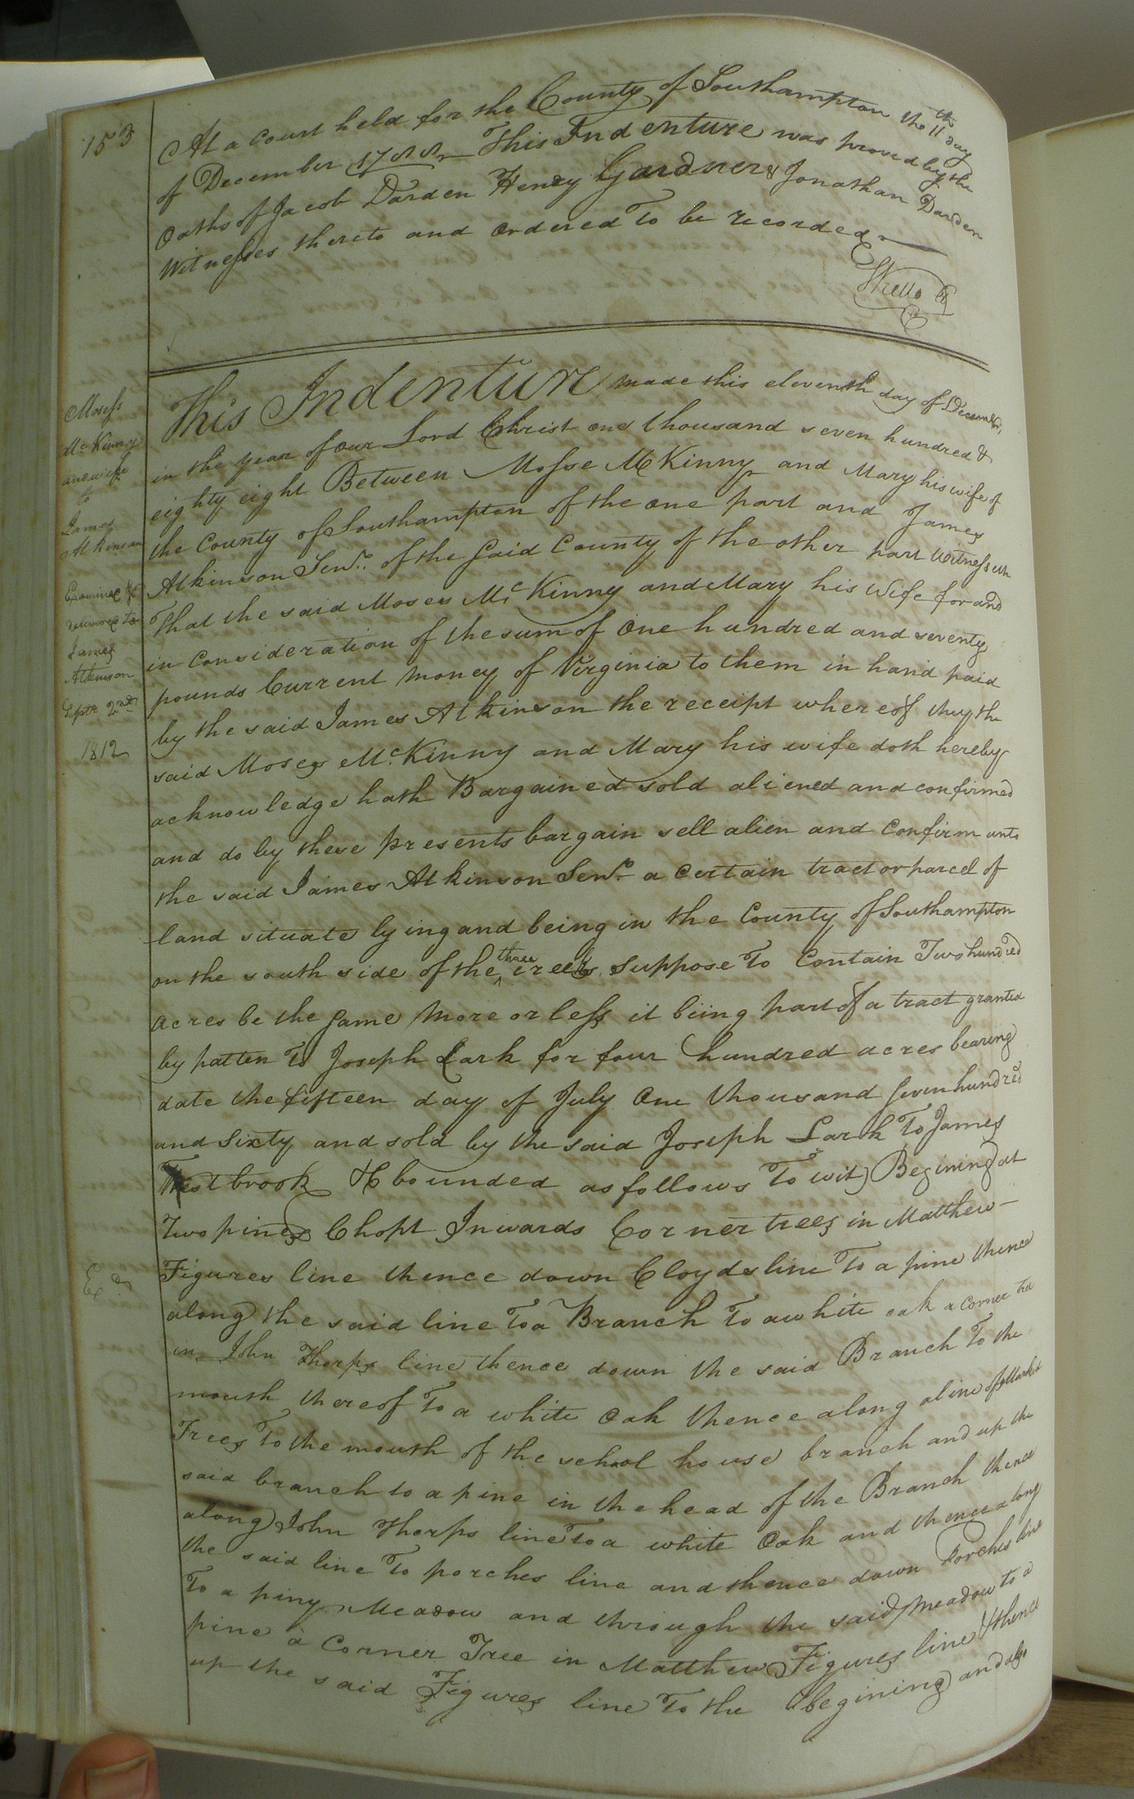 153
At a Court held for the County of Southampton the 11th day
of December 1788 This Indenture was proved by the
Oaths of Jacob Darden Henry Gardner & Jonathan Darden
Witnesses thereto and Ordered To be recorded
Moses
McKinny
and wife
to
James
Atkinson
Examined &
delivered to
James
Atkinson
Septr 2nd
1812
This Indenture made this eleventh day of December,
in the year of our Lord Christ one thousand seven hundred &
eighty eight Between Mosse McKinny and Mary his wife of
the County of Southampton of the one part and James
Atkinson Senr. of the said County of the other part Witnesseth
That the said Moses McKinny and Mary his Wife for and
in Consideration of the sum of One hundred and seventy
pounds Current money of Virginia to them in hand paid
by the said James Atkinson the receipt whereof they the
said Moses McKinny and Mary his wife doth hereby
acknowledge hath Bargained sold aliened and confirmed
and do by these presents bargain sell alien and Confirm unto
the said James Atkinson Senr. a certain tract or parcel of
land situate lying and being in the County of Southampton
on the south side of the three creeks Suppose To Contain Two hundred
acres be the same more or less it biing part of a tract granted
by patten To Joseph Lark for four hundred acres bearing
date the fifteen day of July One thousand Seven hundred
and Sixty and sold by the said Joseph Lark To James
Westbrook & bounded as follows To wit) Begining at
Two pines Chopt Inwards Corner trees in Matthew
Figures line thence down Cloyds line To a pine thence
along the said line To a Branch To a white oak a corner tree
in John Thorps line thence down the said Branch To the
mouth thereof To a white Oak thence along a line of Markt
Trees To the mouth of the school house branch and up the
said branch to a pine in the head of the Branch thence
along John Thorps line To a white Oak and thence along
the said line To porches line and thence down Porches line
To a piny Meadow and through the said meadow to a
pine a Corner Tree in Matthew Figures line & thence
up the said Figures line To the begining and also